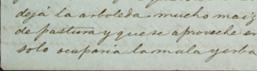 dejá la arboleda mucho maiz
de pastura y que se aproveche en
solo ocuparia la mala yerba